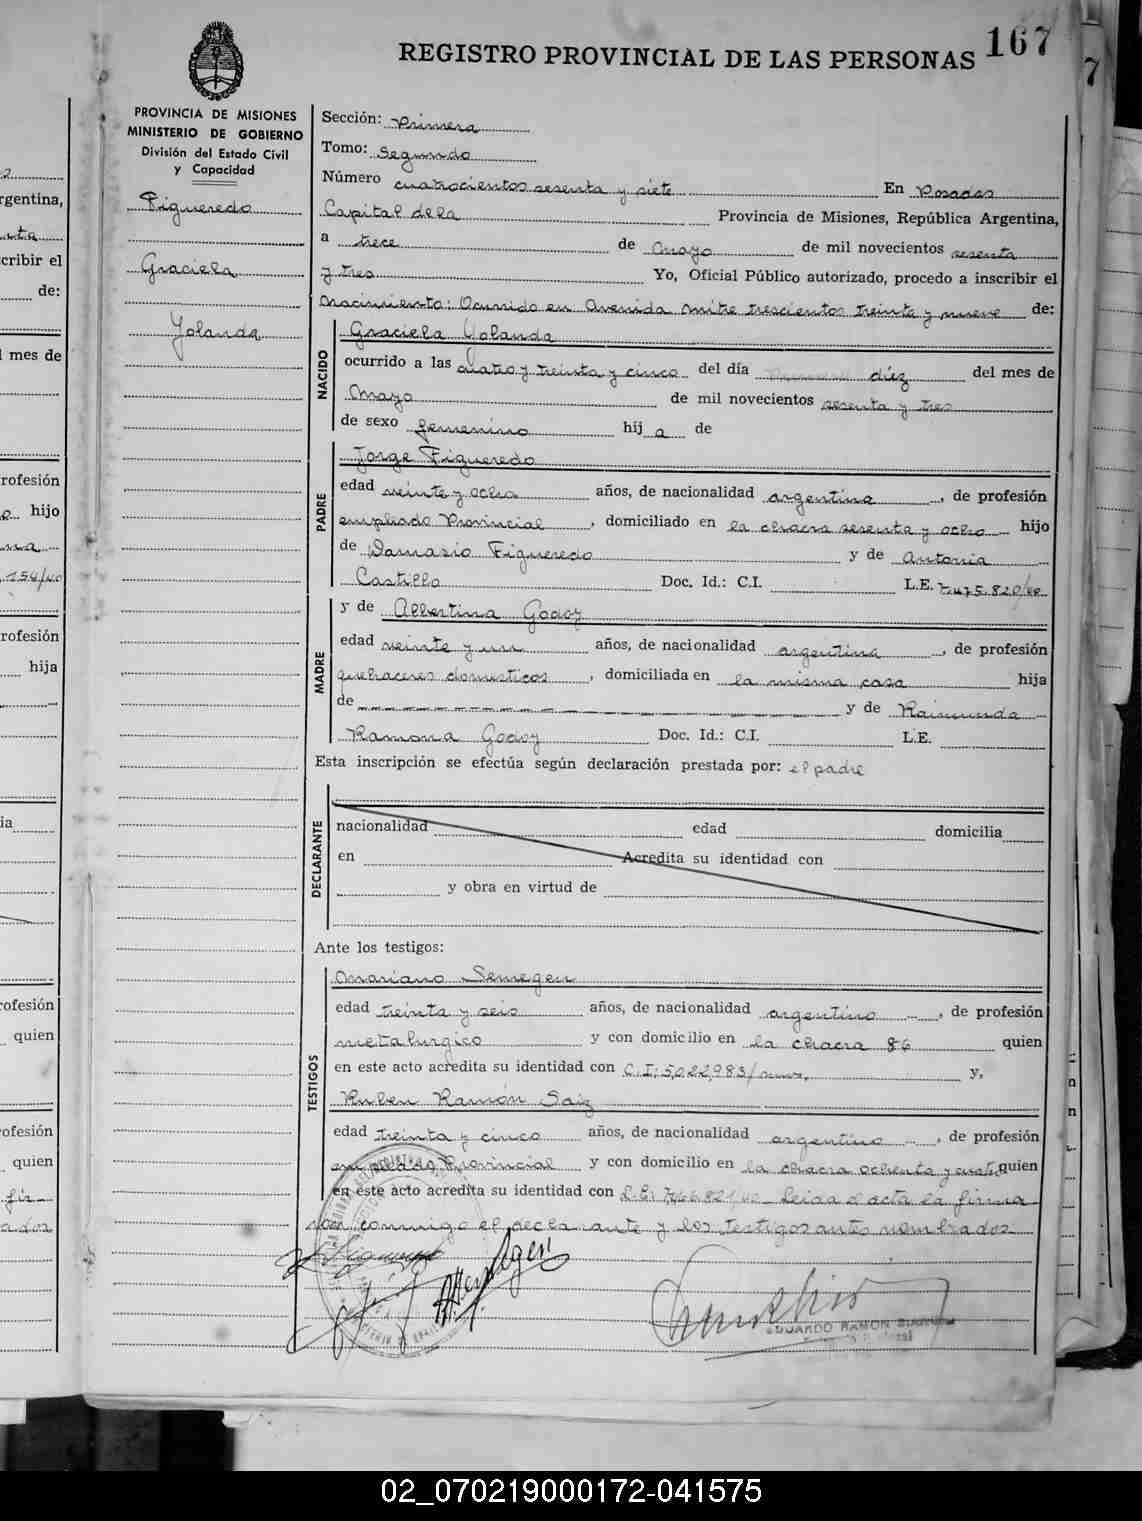 REGISTRO PROVINCIAL DE LAS PERSONAS 167
PROVINCIA DE MISIONES
MINISTERIO DE GOBIERNO
División del Estado Civil
y Capacidad
Figueredo
Graciela
Yolanda
Sección: Primera
Tomo: Segundo
Número cuatrocientos sesenta y siete En Posadas
Capital de la Provincia de Misiones, República Argentina,
a trece de Mayo de mil novecientos sesenta
y tres Yo, Oficial Público autorizado, procedo a inscribir el
Nacimiento: Ocurrido en Avenida Mitre trescientos treinta y nueve de:
NACIDO
Graciela Yolanda
ocurrido a las cuatro y treinta y cinco del día diez del mes de
Mayo de mil novecientos sesenta y tres
de sexo femenino hij a de
PADRE
Jorge Figueredo
edad veinte y ocho años, de nacionalidad argentina, de profesión
empleado Provincial, domiciliado en la chacra sesenta y ocho hijo
de Damasio Figueredo y de Antonia
Castillo Doc. Id.: C.I. L.E.
MADRE
y de Albertina Godoy
edad veinte y un años, de nacionalidad argentina, de profesión
quehaceres domesticos, domiciliada en la misma casa hija
de y de Raimunda
Ramona Godoy Doc. Id.: C.I. L.E.
Esta inscripción se efectúa según declaración prestada por: el padre
DECLARANTE
nacionalidad edad domicilia
en Acredita su identidad con
y obra en virtud de
Ante los testigos:
TESTIGOS
Mariano Semegen
edad treinta y seis años, de nacionalidad argentino, de profesión
metalurgico y con domicilio en la chacra 86 quien
en este acto acredita su identidad con C.I: 5,022,983/ y,
Ruben Ramón Saiz
edad treinta y cinco años, de nacionalidad argentino, de profesión
empleado Provincial y con domicilio en la chacra ochenta y quien
en este acto acredita su identidad con L.E: Leida el acta la firma
con conmigo el declarante y los testigos antes nombrados
EDUARDO RAMON
02_070219000172-041575